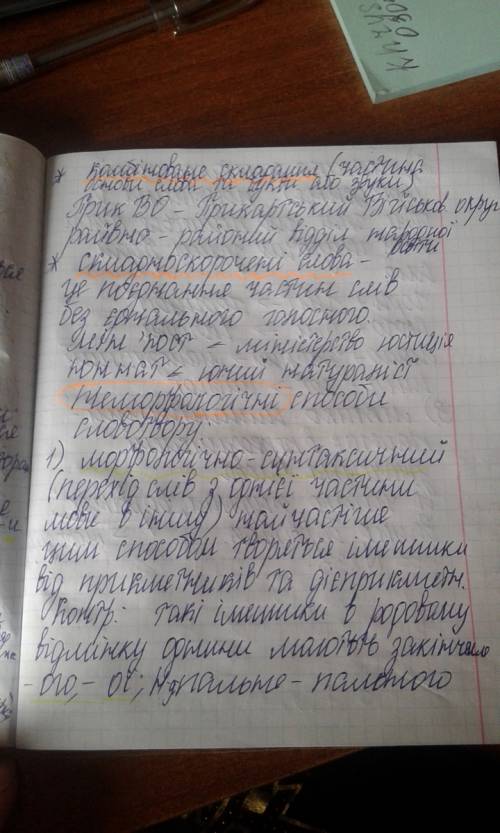 * комбіноване складання (частина
основи слова та букви або звуки)
ПрикВО – Прикарпатський Військов. округ
райвно – районий відділ народної
освіти
* складноскорочені слова –
це поєднання частин слів
без єднального голосного.
Мін'юст < міністерство юстиція
юннат < юний натураліст
Неморфологічні способи
словотвору.
1) морфологічно-синтаксичний
(перехід слів з однієї частини
мови в іншу) найчастіше
цим способом творяться іменники
від прикметників та дієприкметн.
такі іменники в родовому
відмінку однини мають закінчення
-ого, -ої; Н, пальне – пального